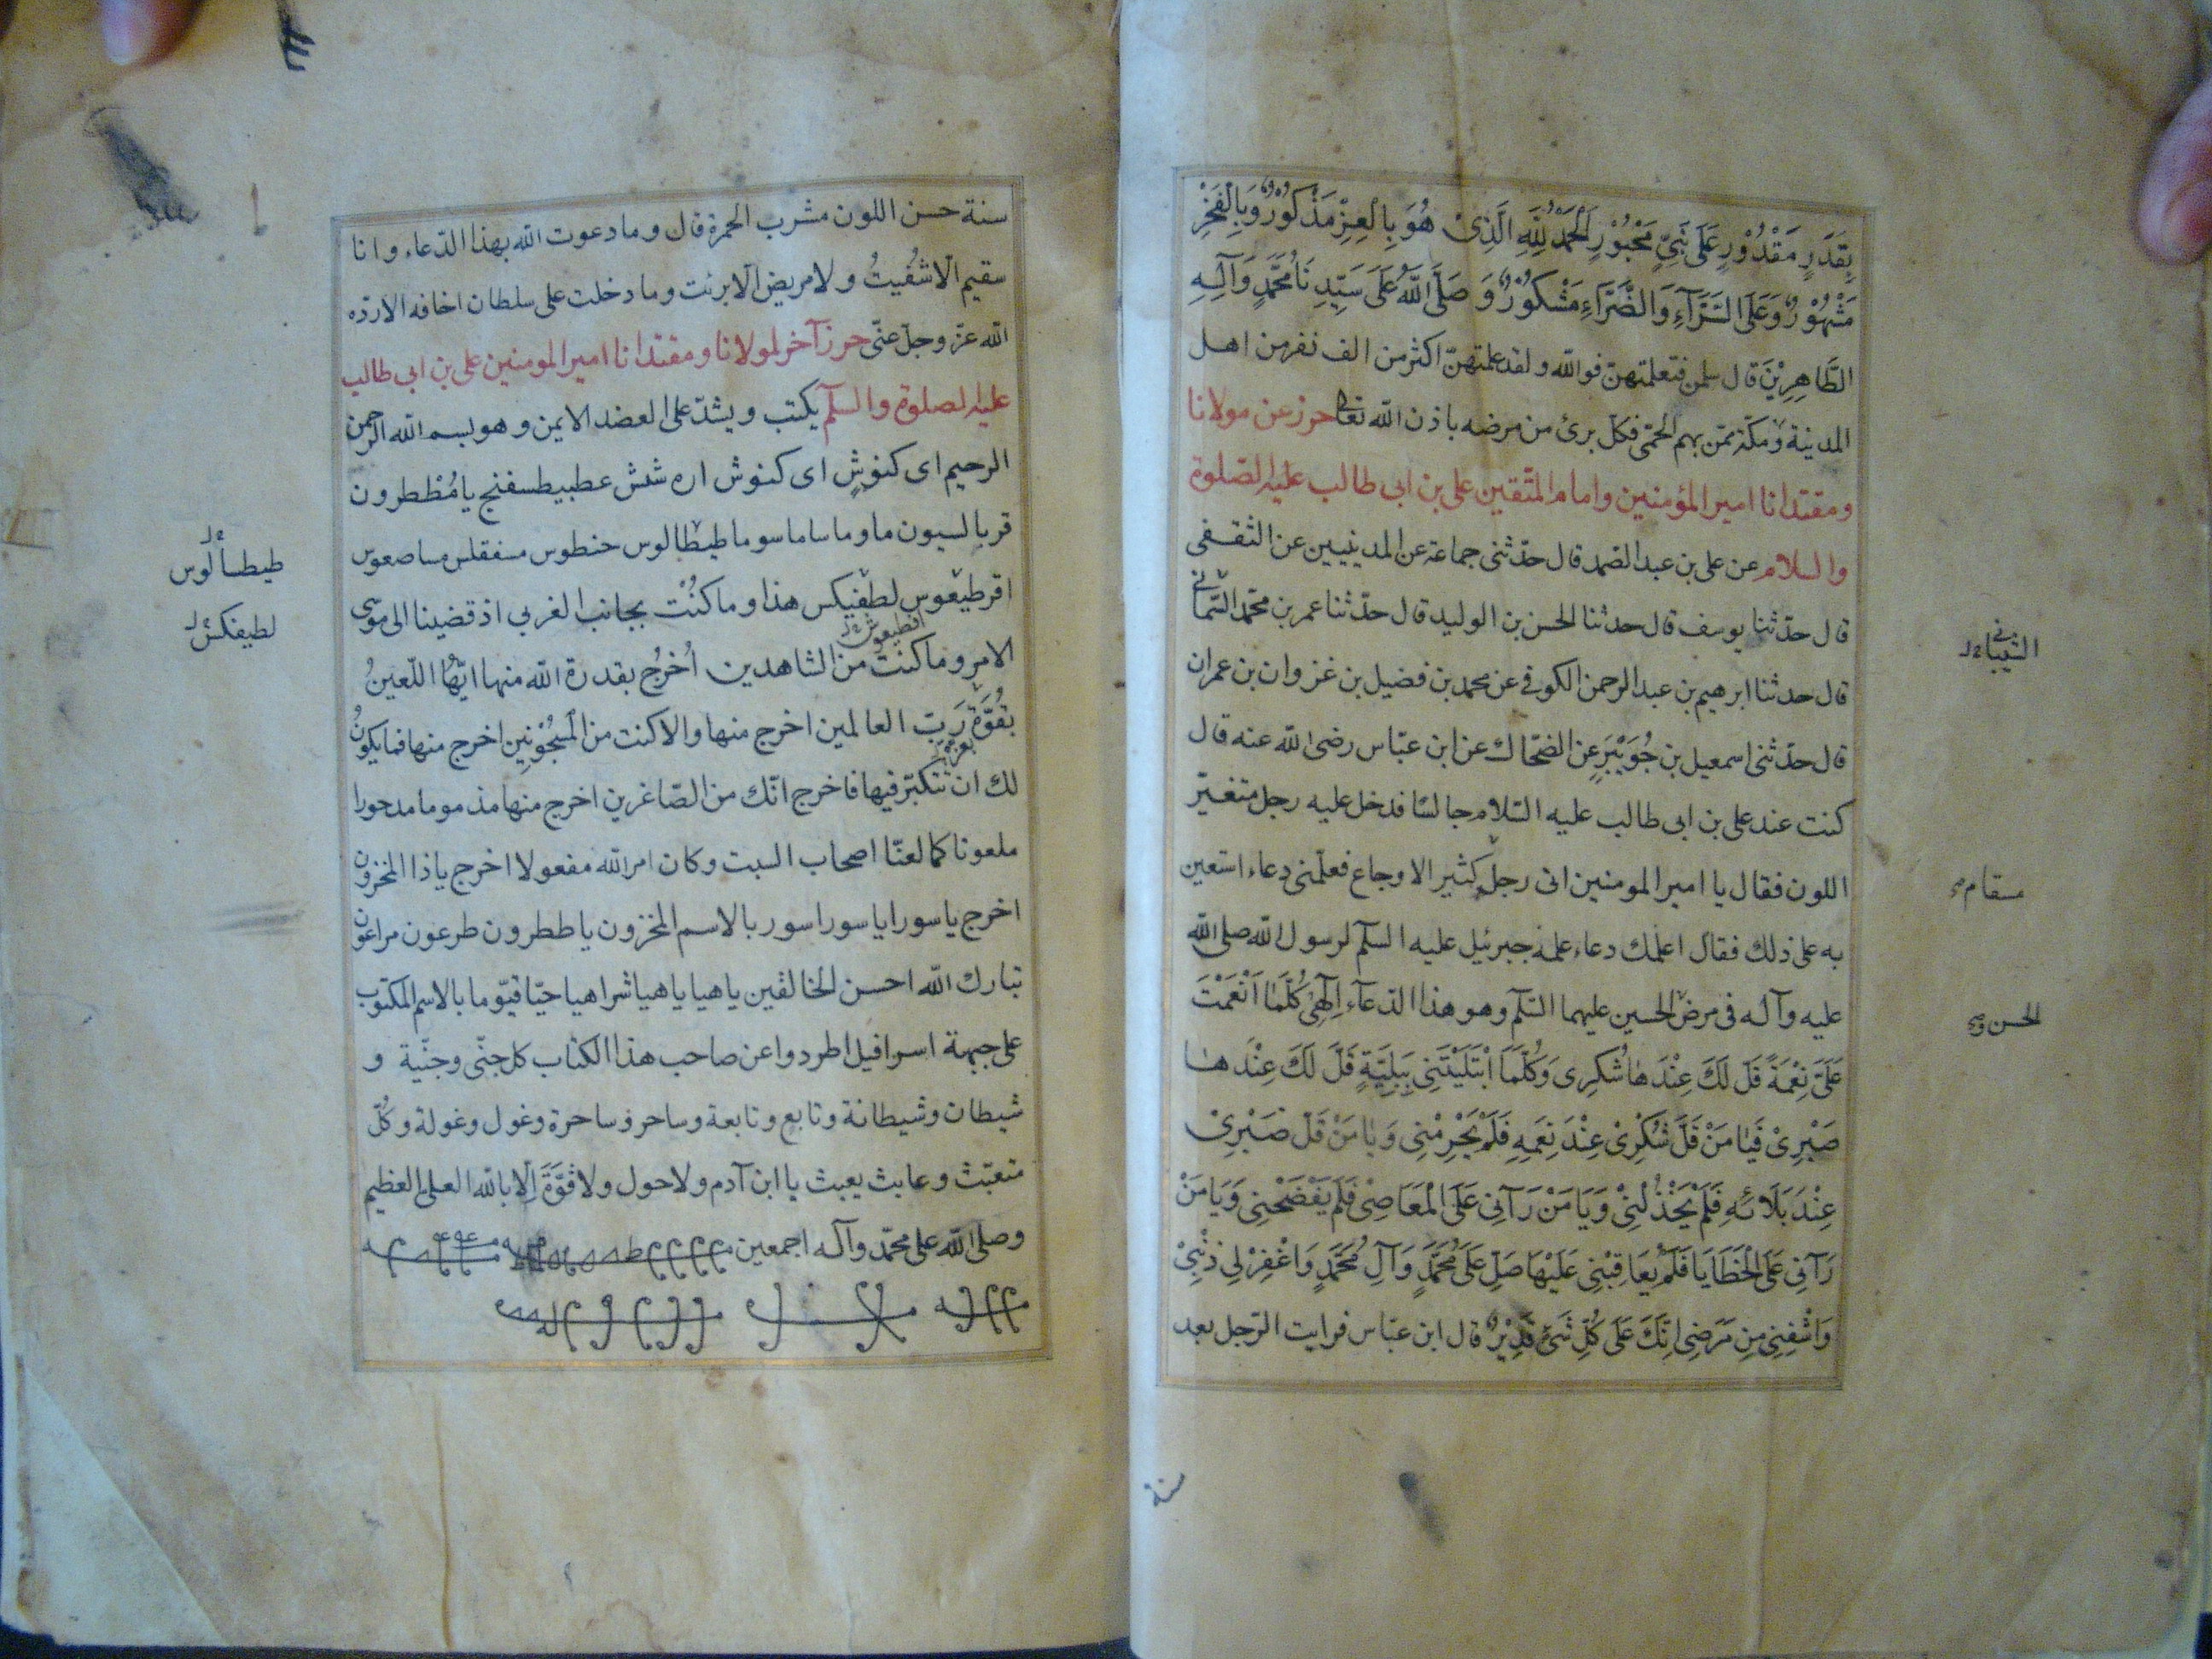 بِقَدَرٍ مَقْدُوْرٍ عَلَى نَبِيٍّ مَحْبُوْرٍ اَلْحَمْدُ لِلّٰهِ الَّذِىْ هُوَ بِالْعِزِّ مَذْكُوْرٌ وَبِالْفَخْرِ
مَشْهُوْرٌ وَعَلَى السَّرَّآءِ وَالضَّرَّآءِ مَشْكُوْرٌ وَصَلَّى اللّٰهُ عَلَى سَيِّدِنَا مُحَمَّدٍ وَآلِهِ
الطَّاهِرِيْنَ قال سلمن فتعلمتهنّ فوالله ولقد علمتهنّ اكثر من الف نفر من اهل
المدينة ومكّة ممّن بهم الحمّى فكل برئ من مرضه باذن الله تعالى حرز عن مولانا
ومقتدانا امير المؤمنين وامام المتّقين على بن ابى طالب عليه الصّلوة
والسلام عن على بن عبد الصّمد قال حدّثنى جماعة عن المدينيين عن الثقفى
قال حدّثنا يوسف قال حدثنا الحسن بن الوليد قال حدّثنا عمر بن محمّد السّمانى
الشيبانى خ ل
قال حدثنا ابرهيم بن عبد الرحمن الكوفى عن محمد بن فضيل بن غزوان بن عمران
قال حدّثنى اسمعيل بن جُوَيْبَرٍ عن الضحّاك عن ابن عبّاس رضى الله عنه قال
كنت عند على بن ابى طالب عليه السّلام جالسًا فدخل عليه رجل متغيّر
اللون فقال يا امير المومنين انى رجل كثير الاوجاع فعلّمنى دعاء استعين
مسقام
به على ذلك فقال اعلمك دعاء علمه جبرئيل عليه السلم لرسول الله صلى الله
عليه وآله فى مرض الحسين عليهما السّلم وهو هذا الدّعآء اِلٰهِىْ كُلَّمَا اَنْعَمْتَ
الحسن و
عَلَىَّ نِعْمَةً قَلَّ لَكَ عِنْدَهٰا شُكرِى وَكُلَّمَا ابْتَلَيْتَنِى بِبَلِيَّةٍ قَلَّ لَكَ عِنْدَهٰا
صَبْرِىْ فَيٰا مَنْ قَلَّ شُكْرِىْ عِنْدَ نِعَمِهِ فَلَمْ يَحْرِمْنِى وَيٰا مَنْ قَلَّ صَبْرِىْ
عِنْدَ بَلَائِهِ فَلَمْ يَخْذُلْنِىْ وَيَا مَنْ رَآنِى عَلَى الْمَعَاصِىْ فَلَمْ يَفْضَحْنِى وَيَا مَنْ
رَآنِى عَلَى الْخَطَايَا فَلَمْ يُعَاقِبْنِى عَلَيْهَا صَلِّ عَلَى مُحَمَّدٍ وَآلِ مُحَمَّدٍ وَاغْفِرْ لِى ذَنْبِىْ
وَاشْفِنِى مِن مَرَضِى اِنَّكَ عَلَى كُلِّ شَىْءٍ قَدِيْرٌ قال ابن عبّاس فرايت الرّجل بعد
سنة
سنة حسن اللون مشرب الحمرة قال وما دعوت الله بهذا الدّعاء وانا
سقيم الّا شُفيتُ ولا مريض الّا برئت وما دخلت على سلطان اخافه الا ردّه
الله عزّ وجلّ عنّى حرز آخر لمولانا ومقتدانا امير المومنين على بن ابى طالب
عليه الصلوة والسلم يكتب ويشدّ على العضد الايمن وهو بسم الله الرحمن
الرحيم اى كنوشٍ اى كنوش اره شش عطبيطسفنج يا مُطْطرون
قربالسيون ما وما ساما سوما طيطالوس خنطوس مسفقلس مساصعوس
طيطسألوس خ ل
اقرطيعوس لطفيكس هذا وما كُنْت بجانب الغربي اذ قضينا الى موسى
لطيفكس خ ل
الامر وما كنت من الشاهدين اُخرُج بقدرة الله منها ايّها اللّعينُ
بقُوّة رَبِ العالمين اخرج منها والا كنت من الْمَسْجُوْنِين اخرج منها فما يكونُ
لك ان تتكبّر فيها فاخرج انّك من الصّاغرين اخرج منها مذموما مدحورا
ملعونا كما لعنّا اصحاب السبت وكان امر الله مفعولا اخرج يا ذا المخزون
اخرج يا سورا يا سورا سور بالاسم المخزون يا ططرون طرعون مراعون
تبارك الله احسن الخالقين ياهيا ياهيا شراهيا حيّا قيّوما بالاسم المكتوب
على جبهة اسرافيل اطردوا عن صاحب هذا الكتاب كل جنّى وجنّية و
شيطان وشيطانة وتابع وتابعة وساحر وساحرة وغول وغولة وكُلّ
متعبّث وعابث يعبث يا ابن آدم ولا حول ولا قُوَّةَ اِلّا بالله العلى العظيم
وصلى الله على محمّد وآله اجمعين